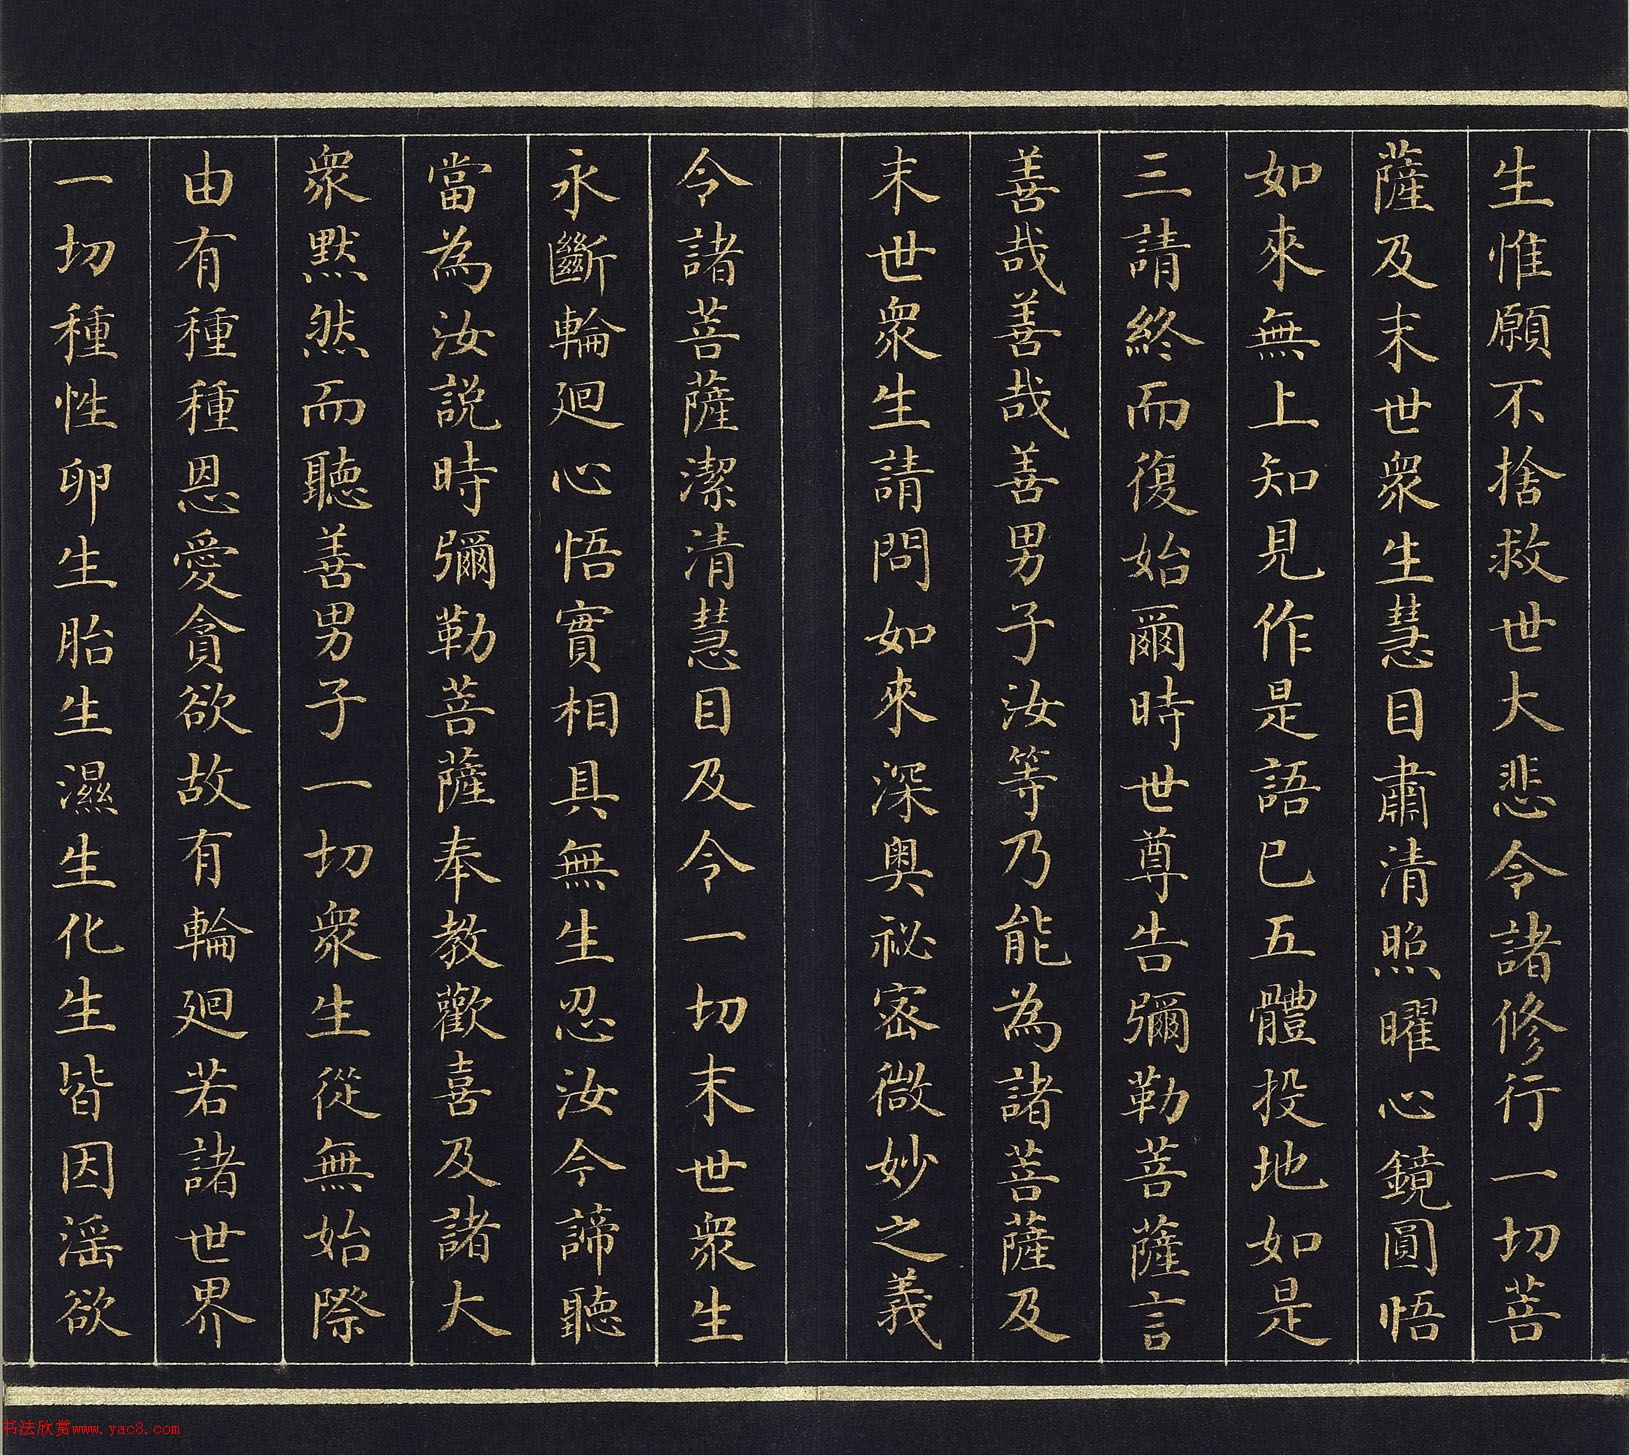 生惟願不捨救世大悲令諸修行一切菩
薩及末世衆生慧目肅清照曜心鏡圓悟
如來無上知見作是語已五體投地如是
三請終而復始爾時世尊告彌勒菩薩言
善哉善哉善男子汝等乃能為諸菩薩及
末世衆生請問如來深奥祕密微妙之義
令諸菩薩潔清慧目及令一切末世衆生
永斷輪廻心悟實相具無生忍汝今諦聽
當為汝説時彌勒菩薩奉教歡喜及諸大
衆默然而聽善男子一切衆生從無始際
由有種種恩愛貪欲故有輪廻若諸世界
一切種性卵生胎生濕生化生皆因滛欲
书法欣赏www.yac8.com